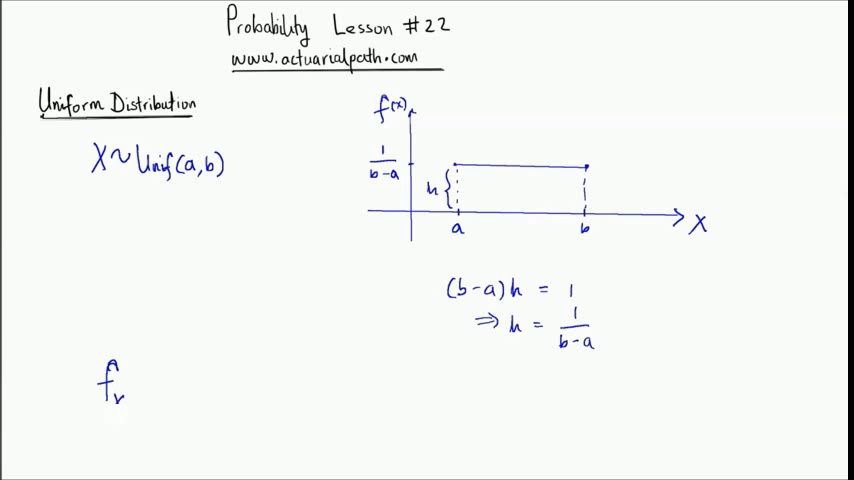 Probability Lesson #22
www.actuarialpath.com
Uniform Distribution
X ~ Unif(a,b)
f(x)
1
b-a
h
a
b
X
(b-a)h = 1
⇒ h = 1
b-a
f x